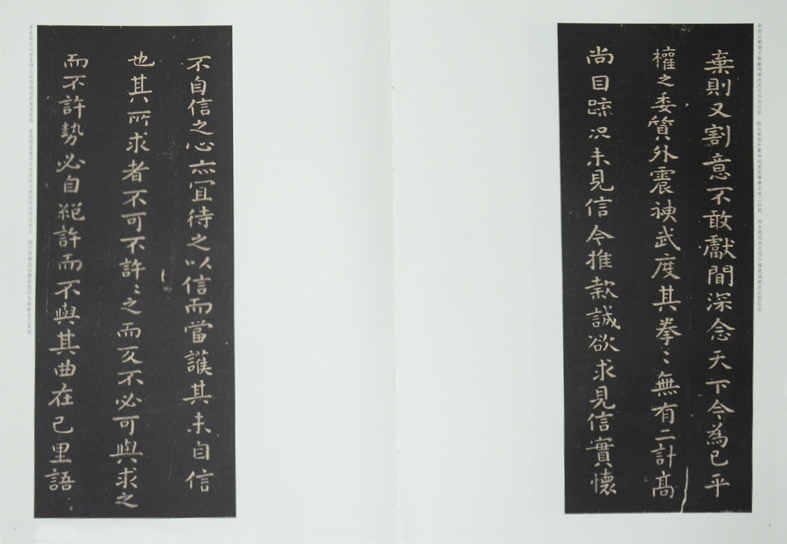 棄則又割意不敢獻聞深念天下今為已平
權之委質外震神武度其拳〻無有二計高
尚自疏況未見信今推款誠欲求見信實懷
不自信之心亦宜待之以信而當護其未自信
也其所求者不可不許〻之而反不必可與求之
而不許勢必自絕許而不與其曲在己里語